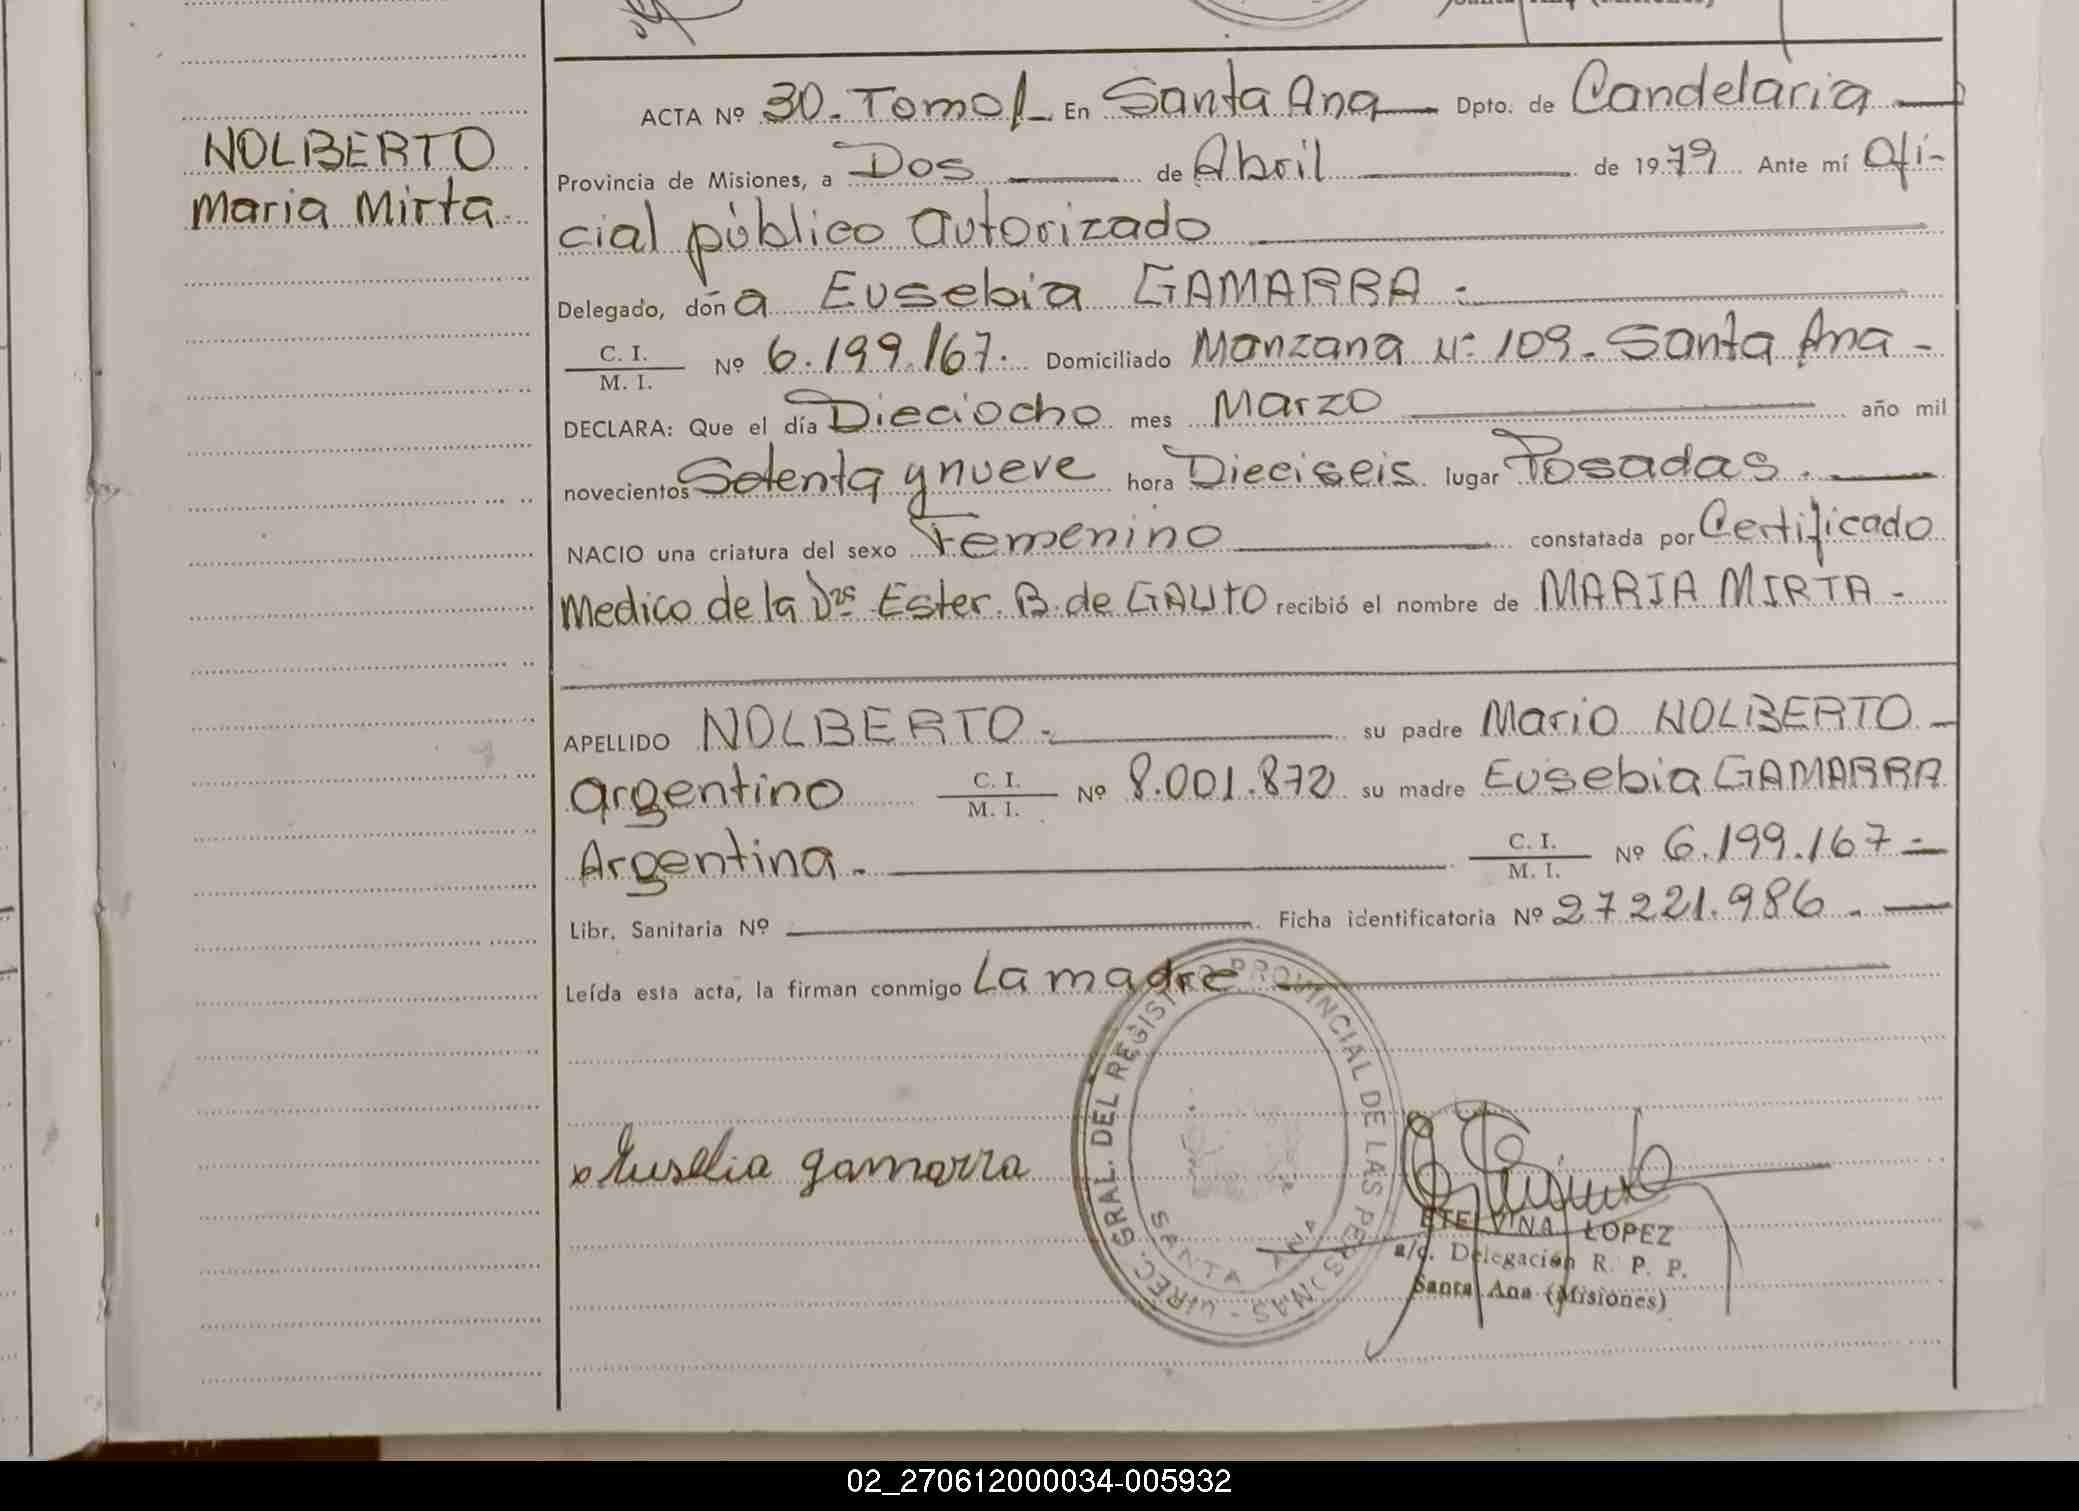 NOLBERTO
Maria Mirta
ACTA Nº 30. Tomo I En Santa Ana Dpto. de Candelaria
Provincia de Misiones, a Dos de Abril de 1979 Ante mí Ofi-
cial público Autorizado
Delegado, doña Eusebia GAMARRA.-
C. I.
M. I. Nº 6.199.167. Domiciliado Manzana Nº 109. Santa Ana -
DECLARA: Que el día Dieciocho mes Marzo año mil
novecientos Setenta y nueve hora Dieciseis lugar Posadas.
NACIO una criatura del sexo Femenino constatada por Certificado
Medico de la Ester. B. de GAUTO recibió el nombre de MARIA MIRTA -
APELLIDO NOLBERTO.- su padre Mario NOLBERTO -
argentino C. I.
M. I. Nº 8.001.872 su madre Eusebia GAMARRA
Argentina.- C. I.
M. I. Nº 6.199.167 =
Libr. Sanitaria Nº Ficha identificatoria Nº 27221.986. -
Leída esta acta, la firman conmigo La madre
DIREC. GRAL. DEL REGISTRO PROVINCIAL DE LAS PERSONAS -
SANTA ANA
x Eusebia gamarra
ETELVINA LOPEZ
a/c. Delegación R. P. P.
Santa Ana (Misiones)
02_270612000034-005932